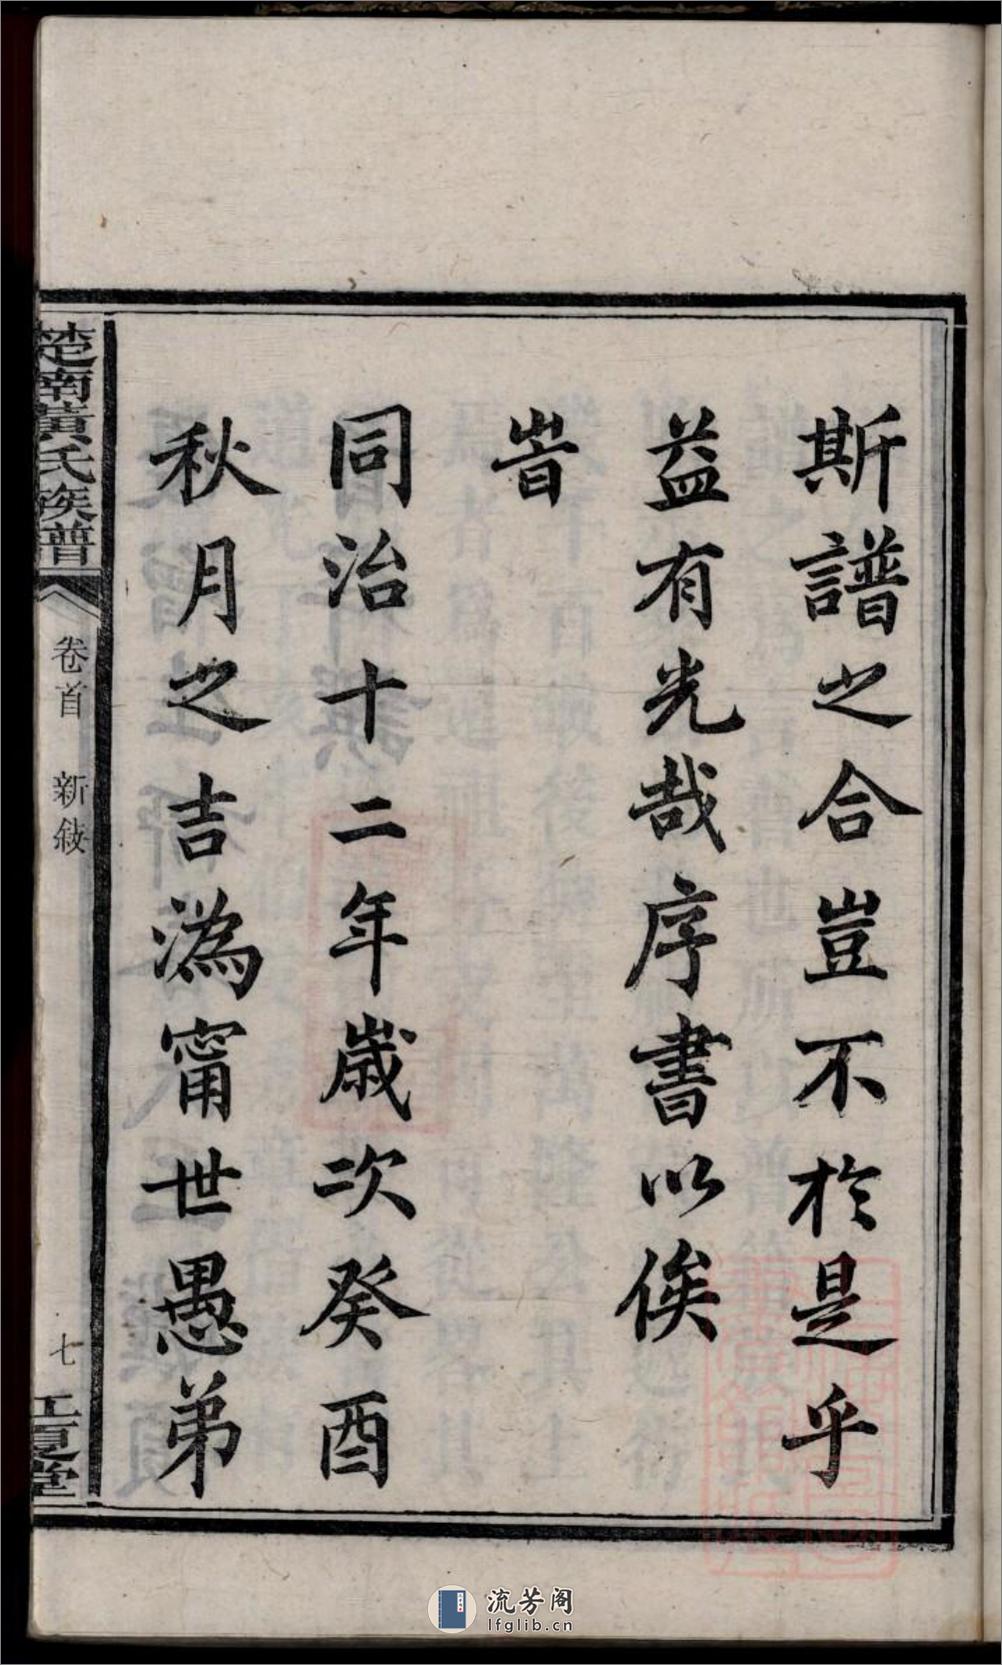 斯譜之合豈不於是乎
益有光哉序書以俟
旹
同治十二年歲次癸酉
秋月之吉溈甯世愚弟
楚南黃氏族譜
卷首 新敘
七
江夏堂
流芳阁
lfglib.cn